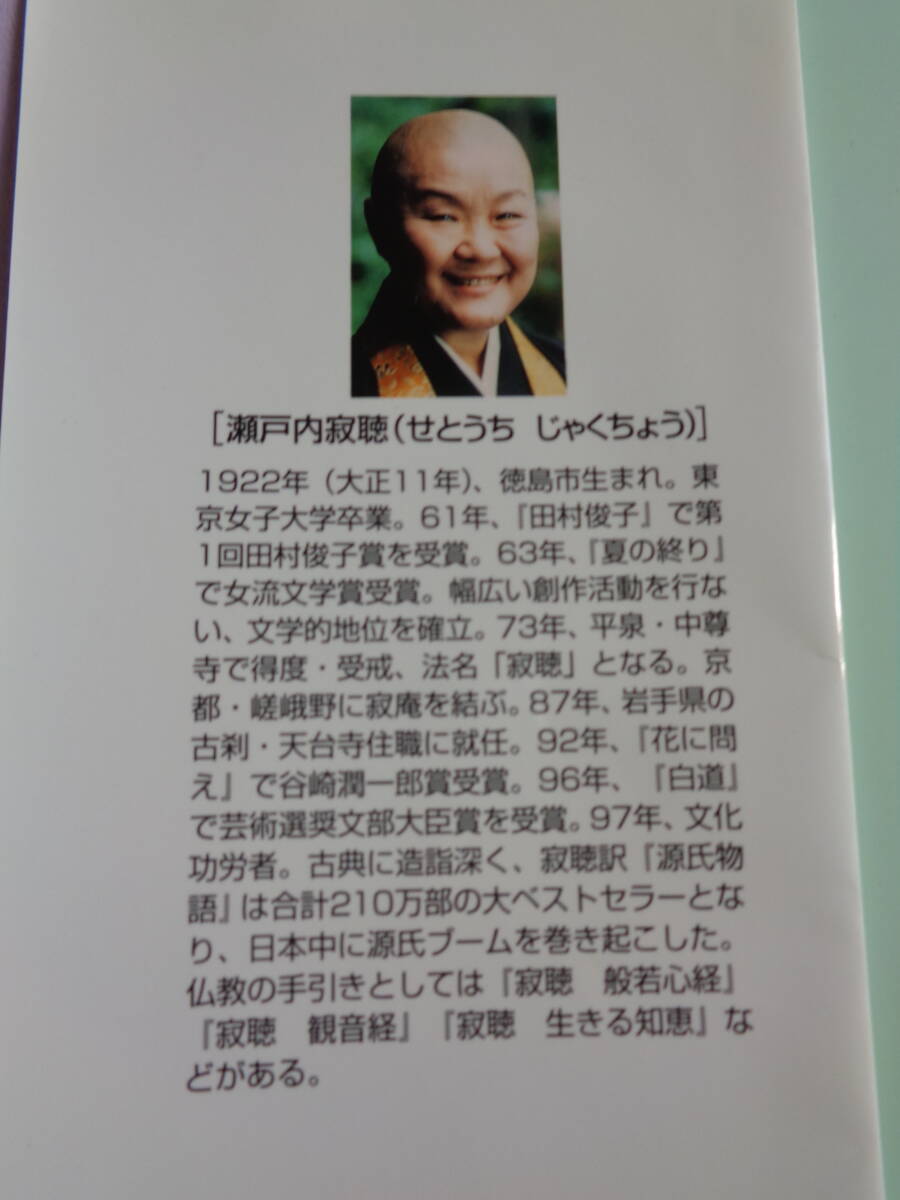 [瀬戸内寂聴(せとうち じゃくちょう)]
1922年（大正11年）、徳島市生まれ。東
京女子大学卒業。61年、『田村俊子』で第
1回田村俊子賞を受賞。63年、『夏の終り』
で女流文学賞受賞。幅広い創作活動を行な
い、文学的地位を確立。73年、平泉・中尊
寺で得度・受戒、法名「寂聴」となる。京
都・嵯峨野に寂庵を結ぶ。87年、岩手県の
古刹・天台寺住職に就任。92年、『花に問
え』で谷崎潤一郎賞受賞。96年、『白道』
で芸術選奨文部大臣賞を受賞。97年、文化
功労者。古典に造詣深く、寂聴訳『源氏物
語』は合計210万部の大ベストセラーとな
り、日本中に源氏ブームを巻き起こした。
仏教の手引きとしては『寂聴　般若心経』
『寂聴　観音経』『寂聴　生きる知恵』な
どがある。